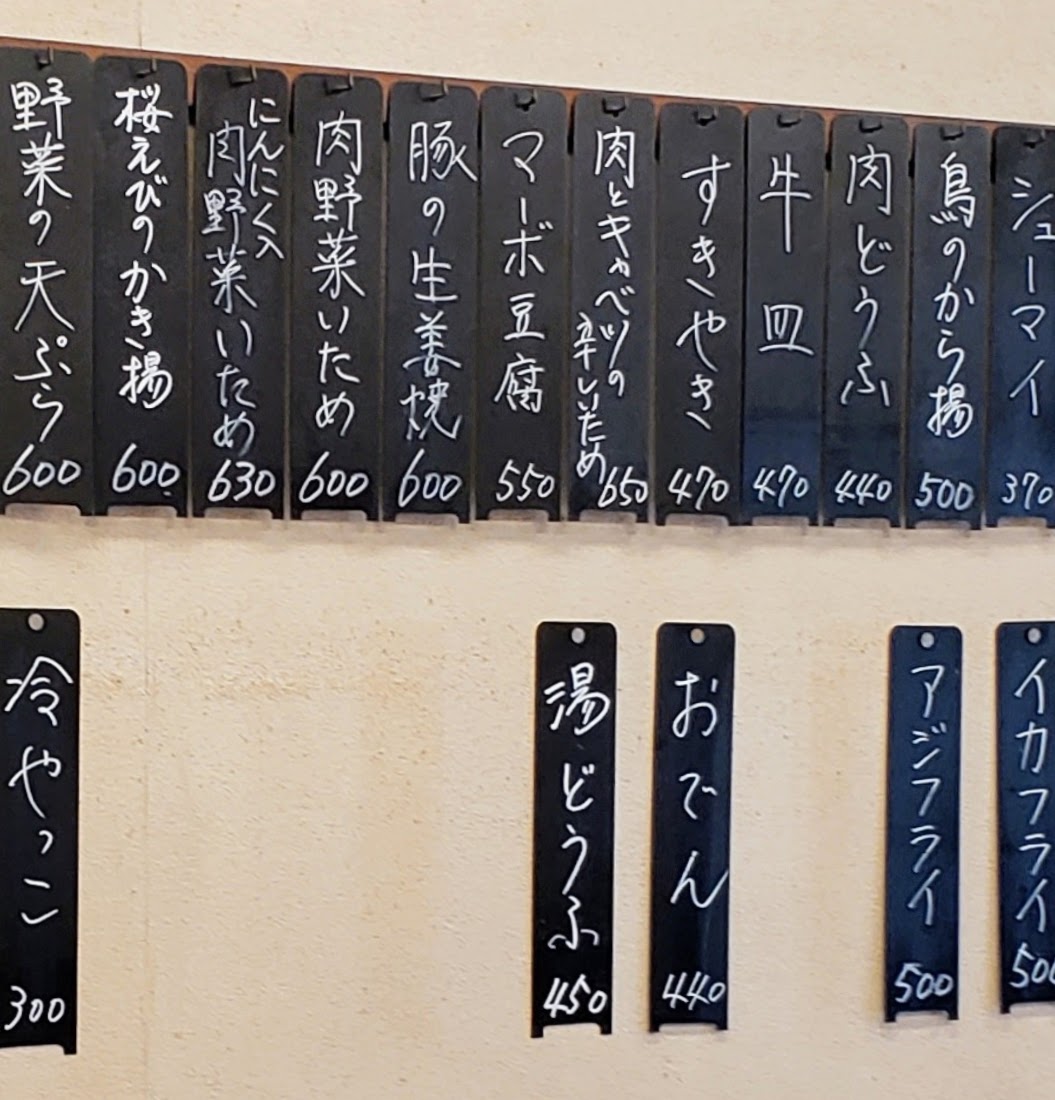 シューマイ 370
鳥のから揚 500
肉どうふ 440
牛皿 470
すきやき 470
肉とキャベツの
辛しいため 650
マーボ豆腐 550
豚の生姜焼 600
肉野菜いため 600
にんにく入
肉野菜いため 630
桜えびのかき揚 600
野菜の天ぷら 600
イカフライ 500
アジフライ 500
おでん 440
湯どうふ 450
冷やっこ 300